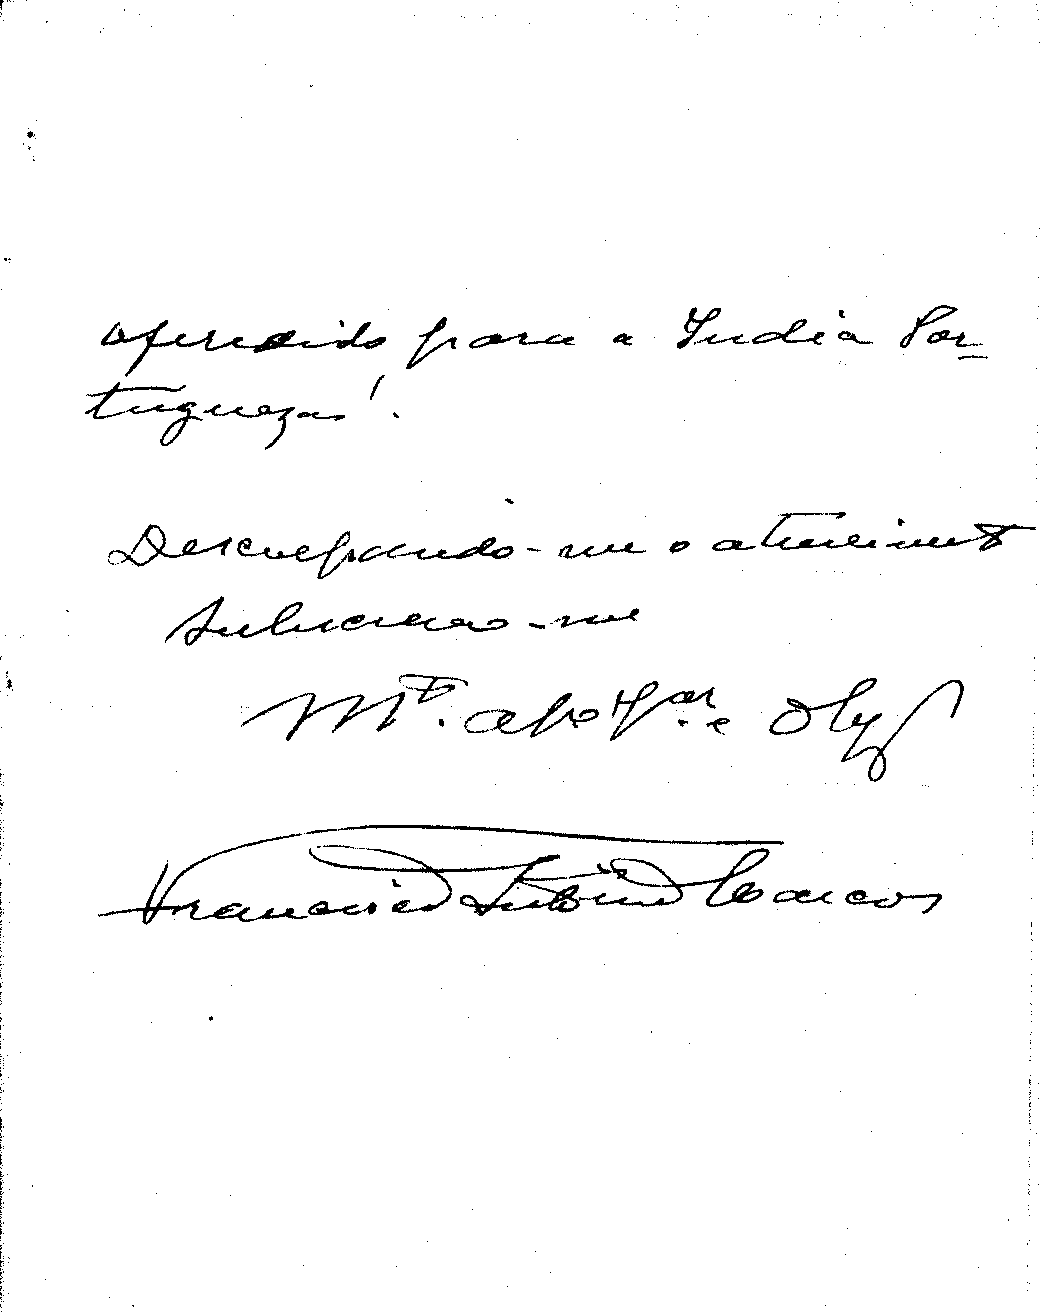 oferecido para a India Por-
tugueza!.
Desculpando-me o atrevimento
subscrevo-me
M.to
Francisco António